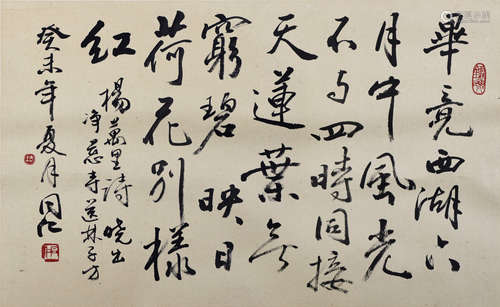 畢竟西湖六
月中風光
不与四時同接
天蓮葉無
窮碧映日
荷花別樣
紅
楊萬里詩曉出
净慈寺送林子方
癸未年夏月同仁